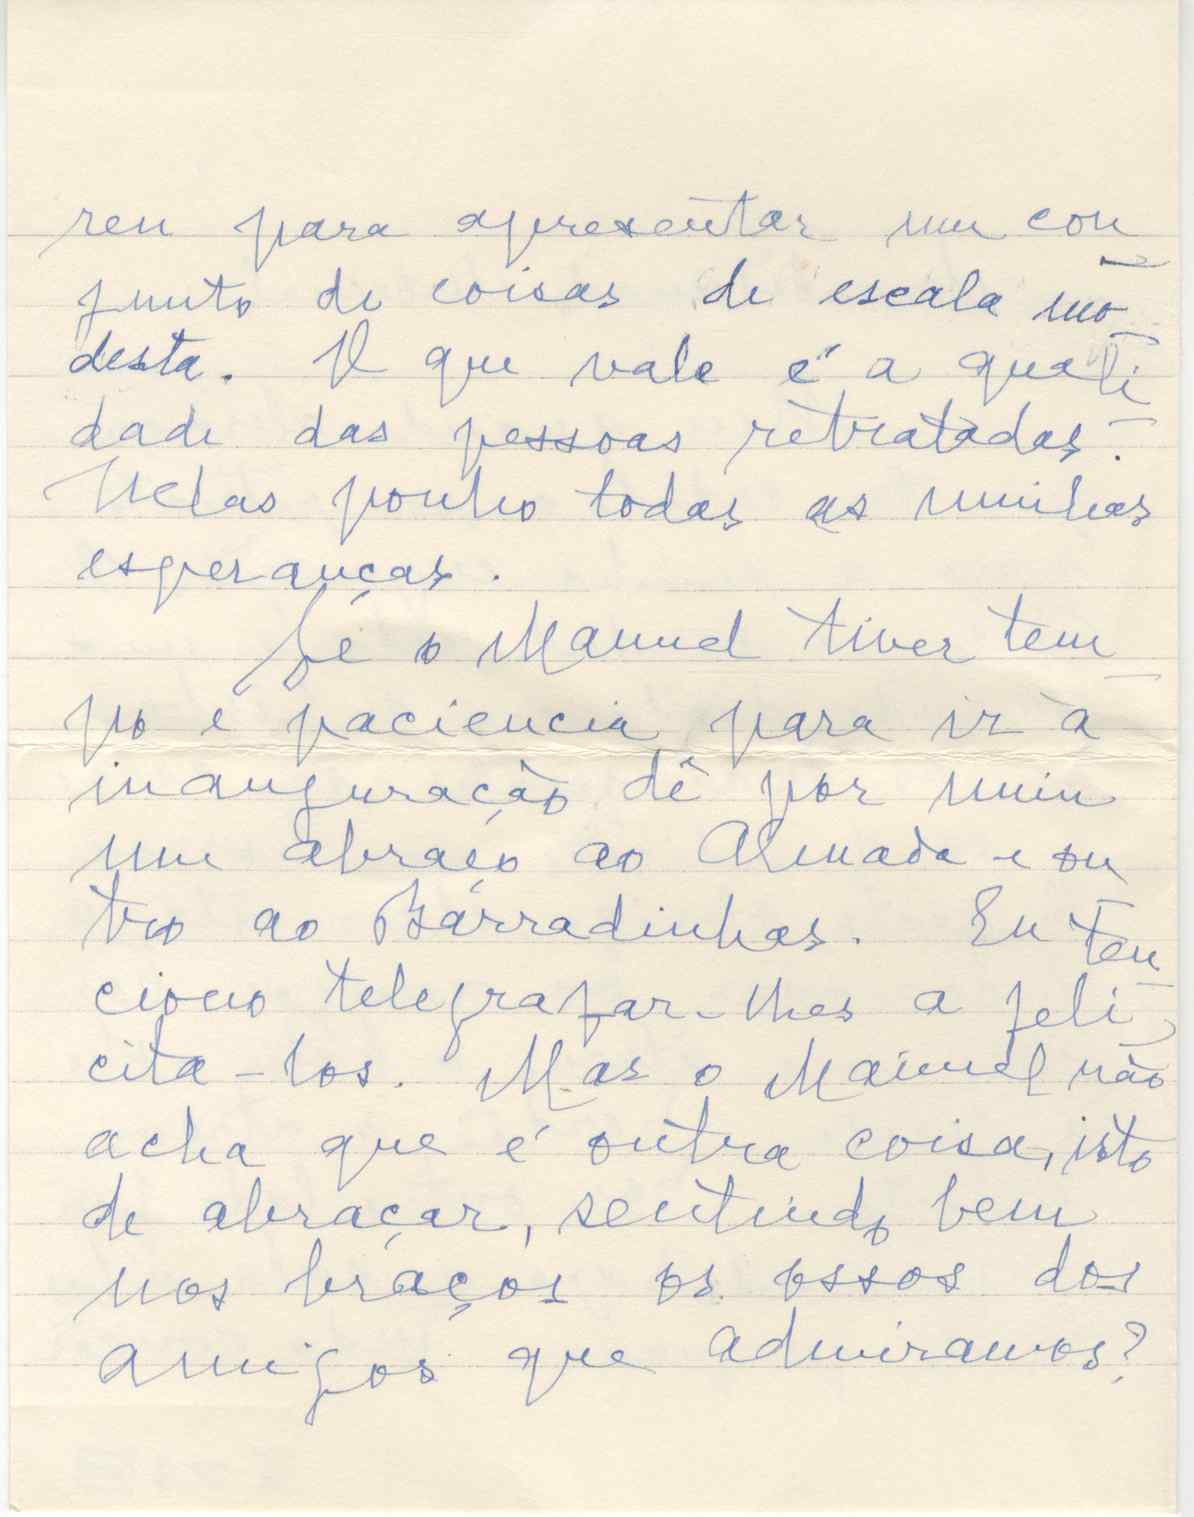 reu para apresentar um con-
junto de coisas de escala mo-
desta. O que vale é a quali-
dade das pessoas retratadas.
Nelas ponho todas as minhas
esperanças.
Se o Manuel tiver tem-
po e paciencia para ir à
inauguração dê por mim
um abraço ao Almada e ou-
tro ao Barradinhas. Eu ten-
ciono telegrafar-lhes a feli-
cita-los. Mas o Manuel não
acha que é outra coisa, isto
de abraçar, sentindo bem
nos braços os ossos dos
amigos que admiramos?